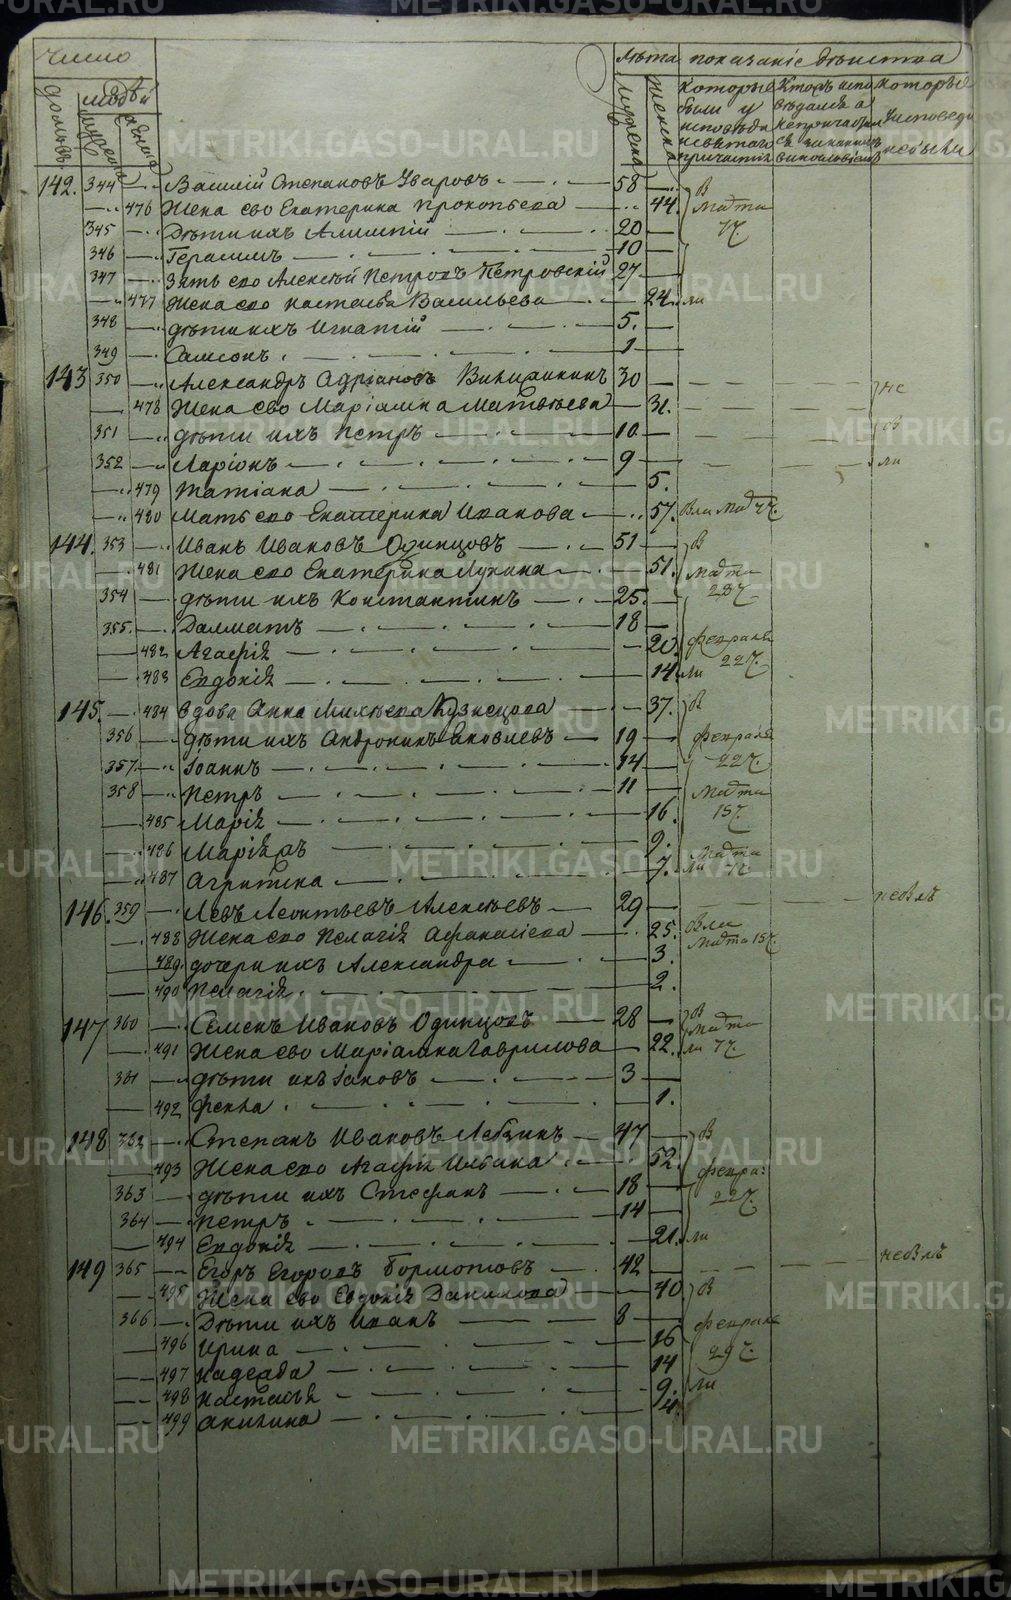 число
Лѣта показаніе дѣиства
людей
домовъ
мужеска
женска
которые были у исповѣди и святаго причастія
исповѣдался а не причастил
которые у исповеди не были
142. 344 Василій Степановъ Уваровъ 58 в
476 Жена ево Екатерина Прокопьева 44. Марта
345 Дѣти ихъ Алимпій 20 7 ч.
346 Герасимъ 10
347 Зять ево Алексѣй Петровъ Петровскій 27
477 Жена ево Настасья Васильева 24. ли
348 дѣти ихъ Игнатій 5.
349 Самсонъ. 1
143 350 Александръ Адріановъ 30 не
478 Жена ево Маріамна Матвѣева 31.
351 дѣти ихъ Петръ 10 ов
352 Ларіонъ 9 ли
479 Татіана 5.
480 Мать ево Екатерина Иванова 57.
144. 353 Иванъ Ивановъ Одинцовъ 51 в
481 Жена ево Екатерина Лукина 51. Марта
354 дѣти ихъ Константинъ 25. 23 ч.
355. Далматъ 18
482 Агафія 20. февраля
483 Евдокія 14 ли 22 ч.
145. 484 Вдова Анна Кузнецова 37. в
356 дѣти ихъ Андроникъ Яковлевъ 19 февраля
357 Іоаннъ 14 22 ч.
358 Петръ 11 Марта
485 Марія 16. 15 ч.
486 Марія 9. Марта
487 Агрипина 7. ли
146. 359 Левъ Леонтьевъ Алексѣевъ 29
488 Жена ево Пелагія Афанасіева 25. Вли Марта 15 ч.
489 дочери ихъ Александра 3.
490 Пелагія. 2.
147 360 Семенъ Ивановъ Одинцовъ 28 в Марта
491 Жена ево Маріамна Гаврилова 22. ли 7 ч.
361 дѣти ихъ Іаковъ 3
492 Фекла 1.
148 362 Степанъ Ивановъ 47 в
493 Жена ево Агафія 52. февра:
363 дѣти ихъ Стефанъ 18 22 ч.
364 Петръ 14
494 Евдокія 21. ли
149 365 Егоръ Егоровъ Бормотовъ 42
495 Жена ево Евдокія Данилова 40 в
366 Дѣти ихъ Иванъ 8 февраля
496 Ирина 16 29 ч.
497 Надежда 14
498 Настасья 9. ли
499 Акилина 4.
METRIKI.GASO-URAL.RU